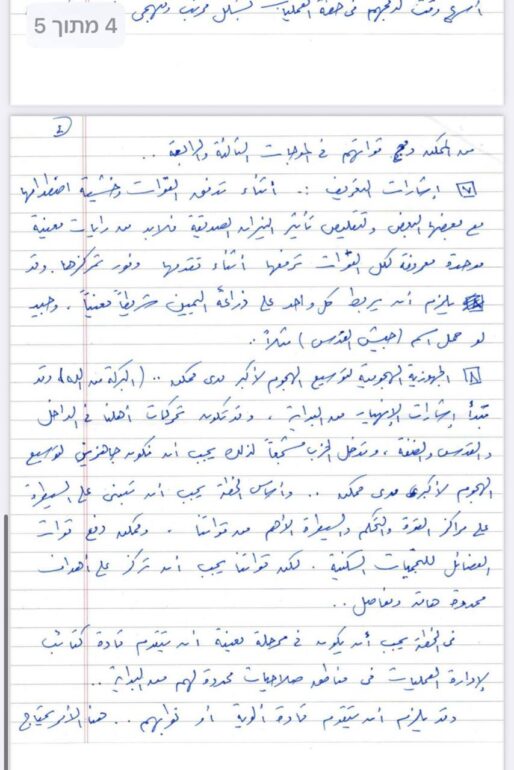 4 מתוך 5
أسرع وقت لدمجهم في خطة العمليات بشكل مرتب ومنهجي
4
من الممكن دمج قواتهم في الموجات الثالثة والرابعة ..
٧ إشارات التعريف :. أثناء تدفق القوات وخشية اصطدامها
مع بعضها البعض ولتقليص تأثير النيران الصديقة فلابد من رايات معينة
موحدة معروفة لكل القوات ترفعها أثناء تقدمها وفور تمركزها. وقد
يلزم أن يربط كل واحد على ذراعه اليمين شريطاً معيناً، وحبيذ
لو حمل اسم (جيش القدس) مثلاً..
٨ الجهوزية الهجومية لتوسيع الهجوم لأكبر مدى ممكن .. (البركة من الله) وقد
تبدأ إشارات الإنهيار من البداية، وقد تكون تحركات أهلنا في الداخل
والقدس والضفة، وتدخل الحزب مشجعاً لذلك يجب أن نكون جاهزين لتوسيع
الهجوم لأكبر مدى ممكن .. وأساس الخطة يجب أن تبنى على السيطرة
على مراكز القوة والتحكم والسيطرة الأهم من قواتنا. وممكن دفع قوات
الفصائل للتجمعات السكنية. لكن قواتنا يجب أن تركز على أهداف
محددة هامة ومفاصل..
في الخطة يجب أن يكون في مرحلة معينة أن يتقدم قادة كتائب
لإدارة العمليات في مناطق صلاحيات محددة لهم من البداية..
وقد يلزم أن يتقدم قادة ألوية أو نوابهم .. هذا الأمر يحتاج